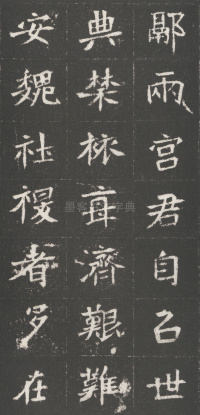 兩宮君自㠯世
典禁旅亟濟艱難
安魏社稷者多在